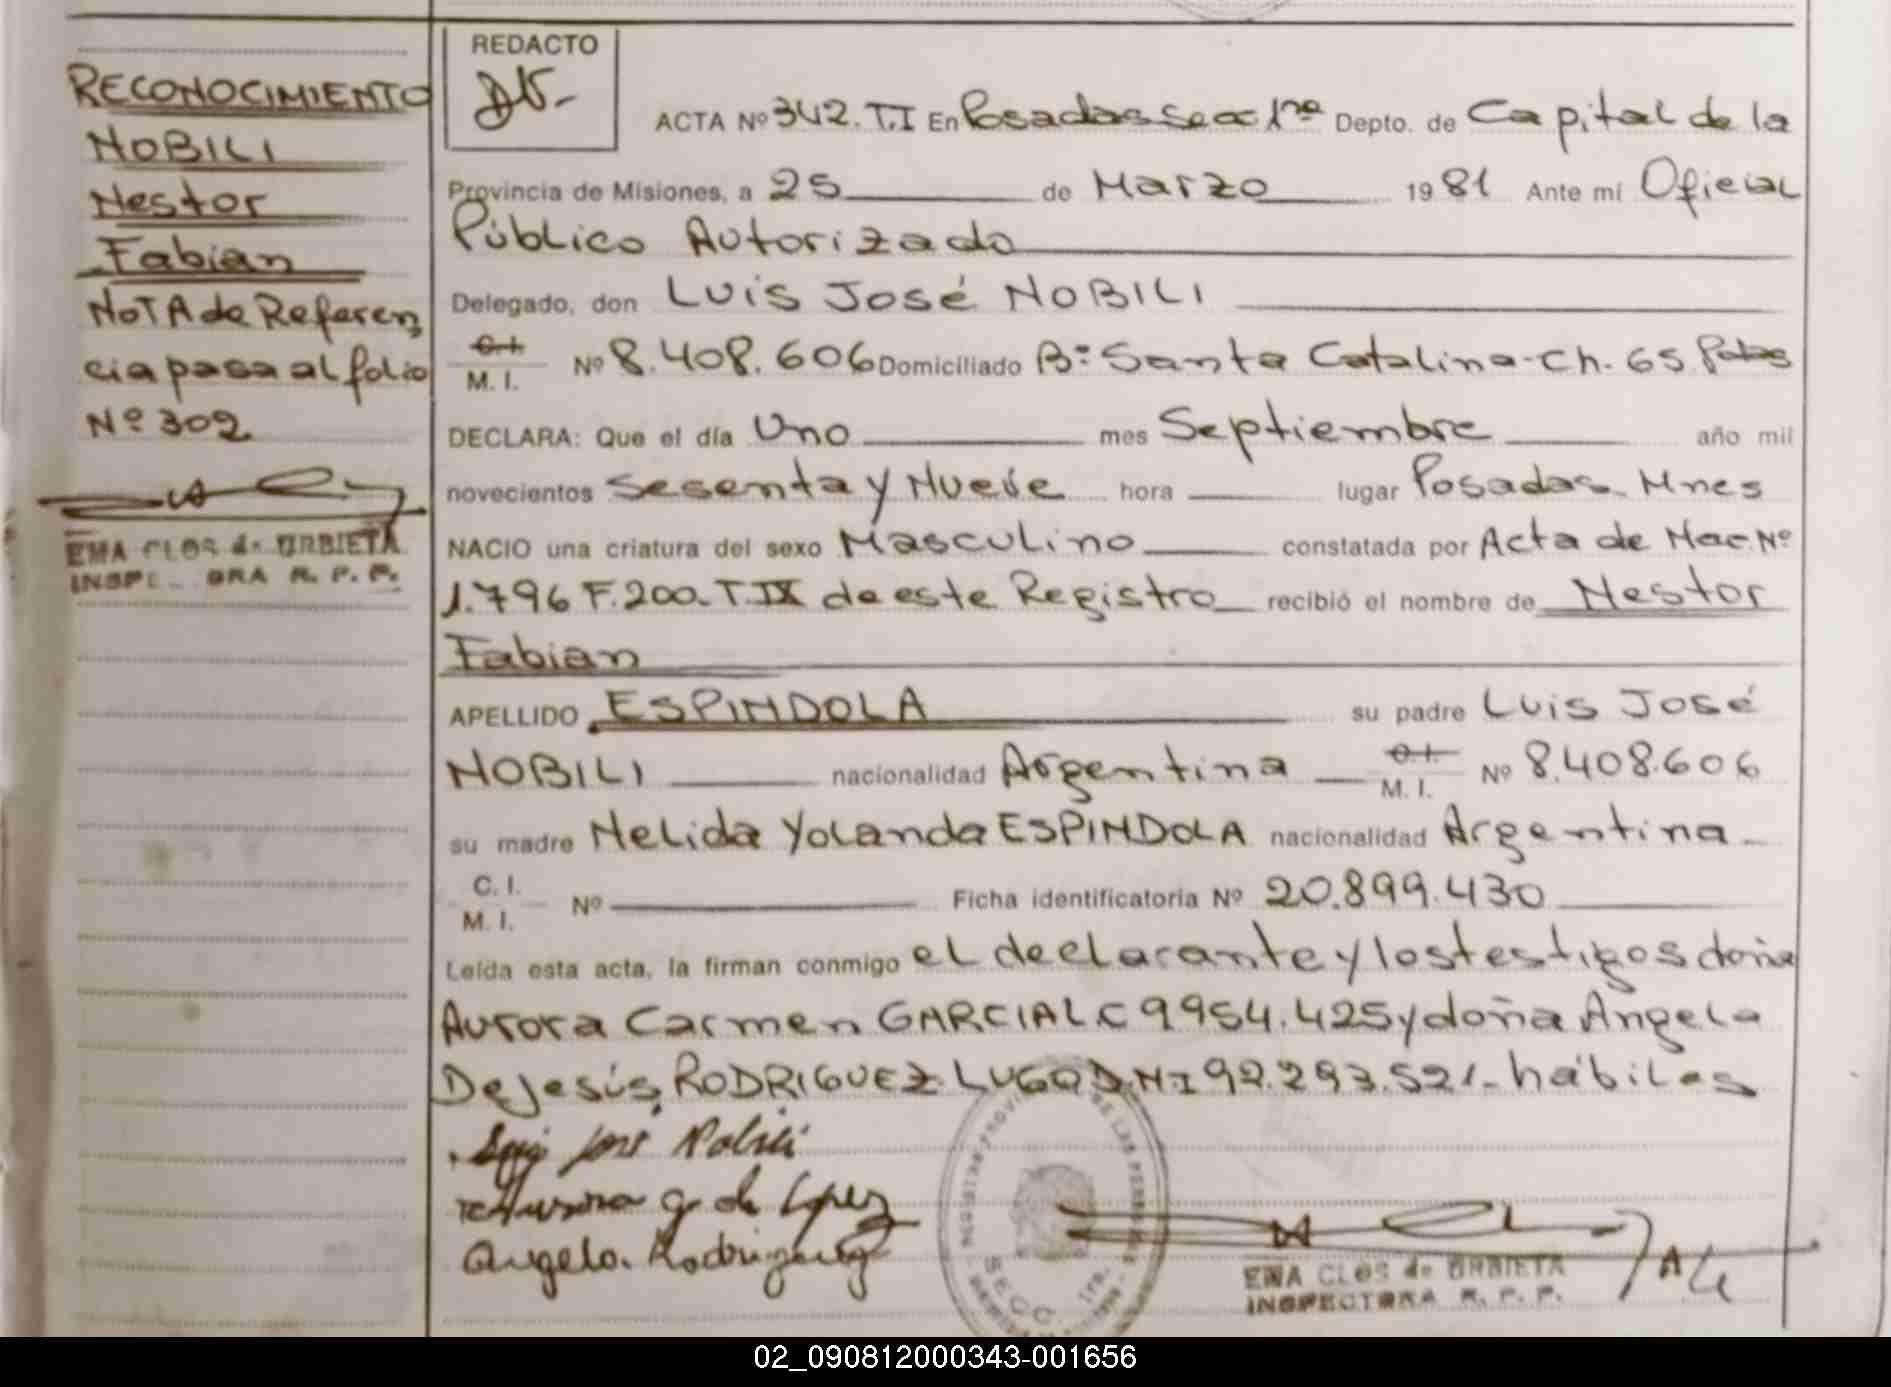 RECONOCIMIENTO
NOBILI
Nestor
Fabian
NOTA de Referen
cia pasa al folio
Nº 302
EMA CLOS de URBIETA
R. P. P.
REDACTO
ACTA Nº 342. T.I En Posadas Secc 1ra Depto. de Capital de la
Provincia de Misiones, a 25 de Marzo 1981 Ante mí Oficial
Público Autorizado
Delegado, don Luis José NOBILI
C.I.
M. I. Nº 8.408.606 Domiciliado Bº Santa Catalina-Ch. 65 Pdas
DECLARA: Que el día Uno mes Septiembre año mil
novecientos Sesenta y Nueve hora lugar Posadas Mnes
NACIO una criatura del sexo Masculino constatada por Acta de Nac. Nº
1.796 F.200 T.IX de este Registro recibió el nombre de Nestor
Fabian
APELLIDO ESPINDOLA su padre Luis José
NOBILI nacionalidad Argentina C.I. M. I. Nº 8.408.606
su madre Nelida Yolanda ESPINDOLA nacionalidad Argentina
C. I.
M. I. Nº Ficha identificatoria Nº 20.899.430
Leída esta acta, la firman conmigo el declarante y los testigos doña
Aurora Carmen GARCIA L.C 9954.425 y doña Angela
De Jesús RODRIGUEZ LUGO D.N.I 92.293.521- hábiles
Luis José Nobili
Aurora G de López
Angela Rodriguez
SECC. 1ra.
EMA CLOS de URBIETA
INSPECTORA R. P. P.
02_090812000343-001656